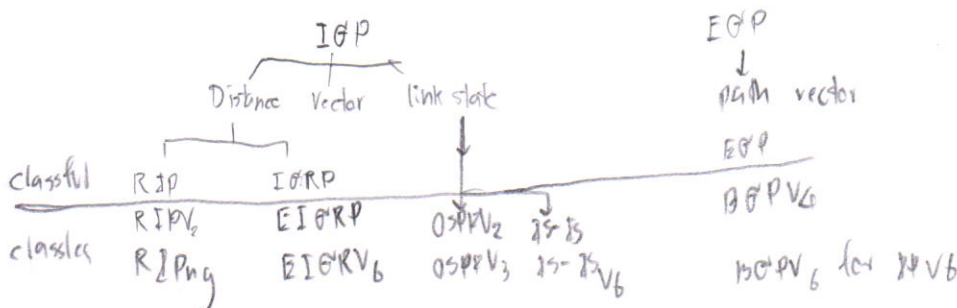 IGP EGP
Distnce vector link state path vector
EGP
classful RIP IGRP
RIPV2 EIGRP OSPFV2 IS-IS BGPV4
classles RIPng EIGRV6 OSPFV3 IS-IS V6 BGPV6 for IPV6